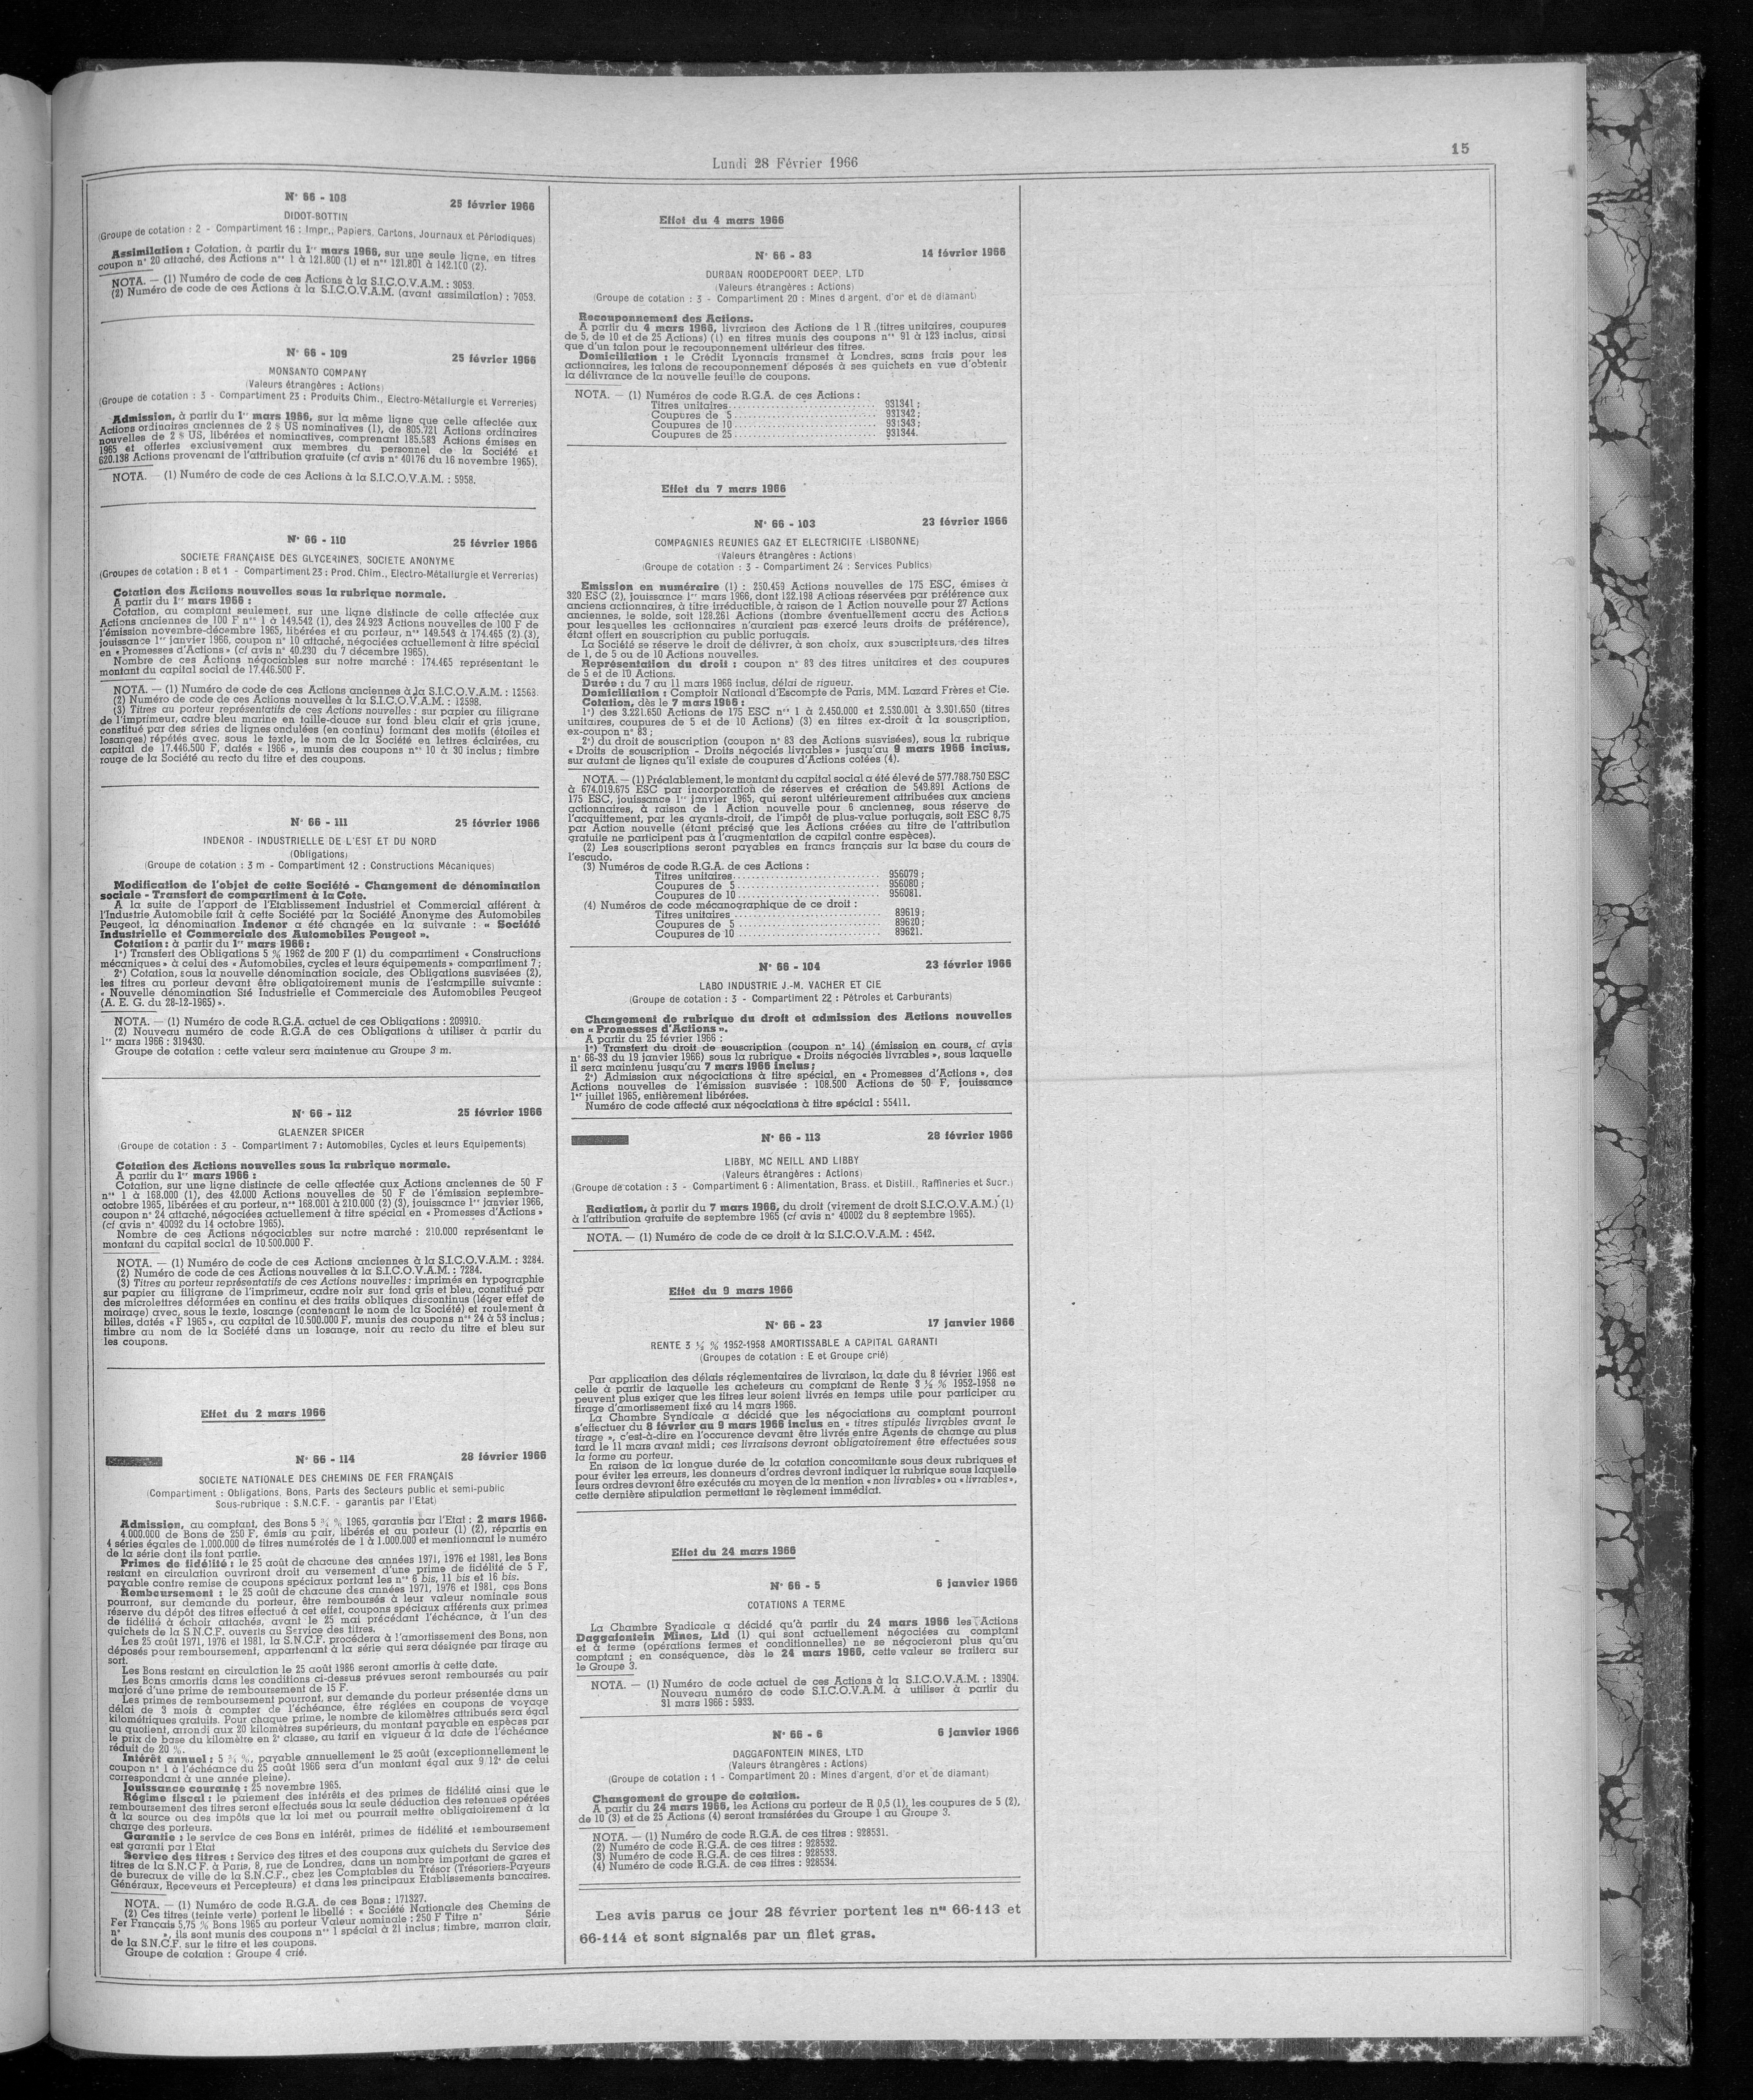 Lundi 28 Février 1966
15
N° 66 - 108
25 février 1966
DIDOT-BOTTIN
(Groupe de cotation : 2 - Compartiment 16 : Impr., Papiers, Cartons, Journaux et Périodiques)
Assimilation : Cotation, à partir du 1er mars 1966, sur une seule ligne, en titres
coupon n° 20 attaché, des Actions nos 1 à 121.800 (1) et nos 121.801 à 142.100 (2).
NOTA. — (1) Numéro de code de ces Actions à la S.I.C.O.V.A.M. : 3053.
(2) Numéro de code de ces Actions à la S.I.C.O.V.A.M. (avant assimilation) : 7053.
N° 66 - 109
25 février 1966
MONSANTO COMPANY
(Valeurs étrangères : Actions)
(Groupe de cotation : 3 - Compartiment 23 : Produits Chim., Electro-Métallurgie et Verreries)
Admission, à partir du 1er mars 1966, sur la même ligne que celle affectée aux
Actions ordinaires anciennes de 2 $ US nominatives (1), de 805.721 Actions ordinaires
nouvelles de 2 $ US, libérées et nominatives, comprenant 185.583 Actions émises en
1965 et offertes exclusivement aux membres du personnel de la Société et
620.138 Actions provenant de l'attribution gratuite (cf avis n° 40176 du 16 novembre 1965).
NOTA. — (1) Numéro de code de ces Actions à la S.I.C.O.V.A.M. : 5958.
N° 66 - 110
25 février 1966
SOCIETE FRANÇAISE DES GLYCERINES, SOCIETE ANONYME
(Groupes de cotation : B et 1 - Compartiment 23 : Prod. Chim., Electro-Métallurgie et Verreries)
Cotation des Actions nouvelles sous la rubrique normale.
A partir du 1er mars 1966 :
Cotation, au comptant seulement, sur une ligne distincte de celle affectée aux
Actions anciennes de 100 F nos 1 à 149.542 (1), des 24.923 Actions nouvelles de 100 F de
l'émission novembre-décembre 1965, libérées et au porteur, nos 149.543 à 174.465 (2) (3),
jouissance 1er janvier 1966, coupon n° 10 attaché, négociées actuellement à titre spécial
en « Promesses d'Actions » (cf avis n° 40.230 du 7 décembre 1965).
Nombre de ces Actions négociables sur notre marché : 174.465 représentant le
montant du capital social de 17.446.500 F.
NOTA. — (1) Numéro de code de ces Actions anciennes à la S.I.C.O.V.A.M. : 12563.
(2) Numéro de code de ces Actions nouvelles à la S.I.C.O.V.A.M. : 12598.
(3) Titres au porteur représentatifs de ces Actions nouvelles : sur papier au filigrane
de l'imprimeur, cadre bleu marine en taille-douce sur fond bleu clair et gris jaune,
constitué par des séries de lignes ondulées (en continu) formant des motifs (étoiles et
losanges) répétés avec, sous le texte, le nom de la Société en lettres éclairées, au
capital de 17.446.500 F, datés « 1966 », munis des coupons nos 10 à 30 inclus ; timbre
rouge de la Société au recto du titre et des coupons.
N° 66 - 111
25 février 1966
INDENOR - INDUSTRIELLE DE L'EST ET DU NORD
(Obligations)
(Groupe de cotation : 3 m - Compartiment 12 : Constructions Mécaniques)
Modification de l'objet de cette Société - Changement de dénomination
sociale - Transfert de compartiment à la Cote.
A la suite de l'apport de l'Etablissement Industriel et Commercial afférent à
l'Industrie Automobile fait à cette Société par la Société Anonyme des Automobiles
Peugeot, la dénomination Indenor a été changée en la suivante : « Société
Industrielle et Commerciale des Automobiles Peugeot ».
Cotation : à partir du 1er mars 1966 :
1°) Transfert des Obligations 5 % 1962 de 200 F (1) du compartiment « Constructions
mécaniques » à celui des « Automobiles, cycles et leurs équipements » compartiment 7 ;
2°) Cotation, sous la nouvelle dénomination sociale, des Obligations susvisées (2),
les titres au porteur devant être obligatoirement munis de l'estampille suivante :
« Nouvelle dénomination Sté Industrielle et Commerciale des Automobiles Peugeot
(A. E. G. du 28-12-1965) ».
NOTA. — (1) Numéro de code R.G.A. actuel de ces Obligations : 209910.
(2) Nouveau numéro de code R.G.A de ces Obligations à utiliser à partir du
1er mars 1966 : 319430.
Groupe de cotation : cette valeur sera maintenue au Groupe 3 m.
N° 66 - 112
25 février 1966
GLAENZER SPICER
(Groupe de cotation : 3 - Compartiment 7 : Automobiles, Cycles et leurs Equipements)
Cotation des Actions nouvelles sous la rubrique normale.
A partir du 1er mars 1966 :
Cotation, sur une ligne distincte de celle affectée aux Actions anciennes de 50 F
nos 1 à 168.000 (1), des 42.000 Actions nouvelles de 50 F de l'émission septembre-
octobre 1965, libérées et au porteur, nos 168.001 à 210.000 (2) (3), jouissance 1er janvier 1966,
coupon n° 24 attaché, négociées actuellement à titre spécial en « Promesses d'Actions »
(cf avis n° 40092 du 14 octobre 1965).
Nombre de ces Actions négociables sur notre marché : 210.000 représentant le
montant du capital social de 10 500.000 F.
NOTA. — (1) Numéro de code de ces Actions anciennes à la S.I.C.O.V.A.M. : 3284.
(2) Numéro de code de ces Actions nouvelles à la S.I.C.O.V.A.M. : 7284.
(3) Titres au porteur représentatifs de ces Actions nouvelles : imprimés en typographie
sur papier au filigrane de l'imprimeur, cadre noir sur fond gris et bleu, constitué par
des microlettres déformées en continu et des traits obliques discontinus (léger effet de
moirage) avec, sous le texte, losange (contenant le nom de la Société) et roulement à
billes, datés « F 1965 », au capital de 10 500.000 F, munis des coupons nos 24 à 53 inclus ;
timbre au nom de la Société dans un losange, noir au recto du titre et bleu sur
les coupons.
Effet du 2 mars 1966
N° 66 - 114
28 février 1966
SOCIETE NATIONALE DES CHEMINS DE FER FRANÇAIS
(Compartiment : Obligations, Bons, Parts des Secteurs public et semi-public
Sous-rubrique : S.N.C.F. - garantis par l'Etat)
Admission, au comptant, des Bons 5 ¾ % 1965, garantis par l'Etat : 2 mars 1966.
4.000.000 de Bons de 250 F, émis au pair, libérés et au porteur (1) (2), répartis en
4 séries égales de 1.000.000 de titres numérotés de 1 à 1.000.000 et mentionnant le numéro
de la série dont ils font partie.
Primes de fidélité : le 25 août de chacune des années 1971, 1976 et 1981, les Bons
restant en circulation ouvriront droit au versement d'une prime de fidélité de 5 F,
payable contre remise de coupons spéciaux portant les nos 6 bis, 11 bis et 16 bis.
Remboursement : le 25 août de chacune des années 1971, 1976 et 1981, ces Bons
pourront, sur demande du porteur, être remboursés à leur valeur nominale sous
réserve du dépôt des titres effectué à cet effet, coupons spéciaux afférents aux primes
de fidélité à échoir attachés, avant le 25 mai précédant l'échéance, à l'un des
guichets de la S.N.C.F. ouverts au Service des titres.
Les 25 août 1971, 1976 et 1981, la S.N.C.F. procédera à l'amortissement des Bons, non
déposés pour remboursement, appartenant à la série qui sera désignée par tirage au
sort.
Les Bons restant en circulation le 25 août 1986 seront amortis à cette date.
Les Bons amortis dans les conditions ci-dessus prévues seront remboursés au pair
majoré d'une prime de remboursement de 15 F.
Les primes de remboursement pourront, sur demande du porteur présentée dans un
délai de 3 mois à compter de l'échéance, être réglées en coupons de voyage
kilométriques gratuits. Pour chaque prime, le nombre de kilomètres attribués sera égal
au quotient, arrondi aux 20 kilomètres supérieurs, du montant payable en espèces par
le prix de base du kilomètre en 2e classe, au tarif en vigueur à la date de l'échéance
réduit de 20 %.
Intérêt annuel : 5 ¾ %, payable annuellement le 25 août (exceptionnellement le
coupon n° 1 à l'échéance du 25 août 1966 sera d'un montant égal aux 9/12e de celui
correspondant à une année pleine).
Jouissance courante : 25 novembre 1965.
Régime fiscal : le paiement des intérêts et des primes de fidélité ainsi que le
remboursement des titres seront effectués sous la seule déduction des retenues opérées
à la source ou des impôts que la loi met ou pourrait mettre obligatoirement à la
charge des porteurs.
Garantie : le service de ces Bons en intérêt, primes de fidélité et remboursement
est garanti par l'Etat
Service des titres : Service des titres et des coupons aux guichets du Service des
titres de la S.N.C F. à Paris, 8, rue de Londres, dans un nombre important de gares et
de bureaux de ville de la S.N.C.F., chez les Comptables du Trésor (Trésoriers-Payeurs
Généraux, Receveurs et Percepteurs) et dans les principaux Etablissements bancaires.
NOTA. — (1) Numéro de code R.G.A. de ces Bons : 171327.
(2) Ces titres (teinte verte) portent le libellé : « Société Nationale des Chemins de
Fer Français 5,75 % Bons 1965 au porteur Valeur nominale : 250 F Titre n° Série
n° », ils sont munis des coupons nos 1 spécial à 21 inclus ; timbre, marron clair,
de la S.N.C.F. sur le titre et les coupons.
Groupe de cotation : Groupe 4 crié.
Effet du 4 mars 1966
N° 66 - 83
14 février 1966
DURBAN ROODEPOORT DEEP, LTD
(Valeurs étrangères : Actions)
(Groupe de cotation : 3 - Compartiment 20 : Mines d'argent, d'or et de diamant)
Recouponnement des Actions.
A partir du 4 mars 1966, livraison des Actions de 1 R (titres unitaires, coupures
de 5, de 10 et de 25 Actions) (1) en titres munis des coupons nos 91 à 123 inclus, ainsi
que d'un talon pour le recouponnement ultérieur des titres.
Domiciliation : le Crédit Lyonnais transmet à Londres, sans frais pour les
actionnaires, les talons de recouponnement déposés à ses guichets en vue d'obtenir
la délivrance de la nouvelle feuille de coupons.
NOTA. — (1) Numéros de code R.G.A. de ces Actions :
Titres unitaires.............................. 931341 ;
Coupures de 5.............................. 931342 ;
Coupures de 10.............................. 931343 ;
Coupures de 25.............................. 931344.
Effet du 7 mars 1966
N° 66 - 103
23 février 1966
COMPAGNIES REUNIES GAZ ET ELECTRICITE (LISBONNE)
(Valeurs étrangères : Actions)
(Groupe de cotation : 3 - Compartiment 24 : Services Publics)
Emission en numéraire (1) : 250.459 Actions nouvelles de 175 ESC, émises à
320 ESC (2), jouissance 1er mars 1966, dont 122.198 Actions réservées par préférence aux
anciens actionnaires, à titre irréductible, à raison de 1 Action nouvelle pour 27 Actions
anciennes, le solde, soit 128.261 Actions (nombre éventuellement accru des Actions
pour lesquelles les actionnaires n'auraient pas exercé leurs droits de préférence),
étant offert en souscription au public portugais.
La Société se réserve le droit de délivrer, à son choix, aux souscripteurs, des titres
de 1, de 5 ou de 10 Actions nouvelles.
Représentation du droit : coupon n° 83 des titres unitaires et des coupures
de 5 et de 10 Actions.
Durée : du 7 au 11 mars 1966 inclus, délai de rigueur.
Domiciliation : Comptoir National d'Escompte de Paris, MM. Lazard Frères et Cie.
Cotation, dès le 7 mars 1966 :
1°) des 3.221.650 Actions de 175 ESC nos 1 à 2.450.000 et 2.530.001 à 3.301.650 (titres
unitaires, coupures de 5 et de 10 Actions) (3) en titres ex-droit à la souscription,
ex-coupon n° 83 ;
2°) du droit de souscription (coupon n° 83 des Actions susvisées), sous la rubrique
« Droits de souscription - Droits négociés livrables » jusqu'au 9 mars 1966 inclus,
sur autant de lignes qu'il existe de coupures d'Actions cotées (4).
NOTA. — (1) Préalablement, le montant du capital social a été élevé de 577.788.750 ESC
à 674.019.675 ESC par incorporation de réserves et création de 549.891 Actions de
175 ESC, jouissance 1er janvier 1965, qui seront ultérieurement attribuées aux anciens
actionnaires, à raison de 1 Action nouvelle pour 6 anciennes, sous réserve de
l'acquittement, par les ayants-droit, de l'impôt de plus-value portugais, soit ESC 8,75
par Action nouvelle (étant précisé que les Actions créées au titre de l'attribution
gratuite ne participent pas à l'augmentation de capital contre espèces).
(2) Les souscriptions seront payables en francs français sur la base du cours de
l'escudo.
(3) Numéros de code R.G.A. de ces Actions :
Titres unitaires.............................. 956079 ;
Coupures de 5.............................. 956080 ;
Coupures de 10.............................. 956081.
(4) Numéros de code mécanographique de ce droit :
Titres unitaires .............................. 89619 ;
Coupures de 5.............................. 89620 ;
Coupures de 10 .............................. 89621.
N° 66 - 104
23 février 1966
LABO INDUSTRIE J.-M. VACHER ET CIE
(Groupe de cotation : 3 - Compartiment 22 : Pétroles et Carburants)
Changement de rubrique du droit et admission des Actions nouvelles
en « Promesses d'Actions ».
A partir du 25 février 1966 :
1°) Transfert du droit de souscription (coupon n° 14) (émission en cours, cf avis
n° 66-33 du 19 janvier 1966) sous la rubrique « Droits négociés livrables », sous laquelle
il sera maintenu jusqu'au 7 mars 1966 inclus ;
2°) Admission aux négociations à titre spécial, en « Promesses d'Actions », des
Actions nouvelles de l'émission susvisée : 108.500 Actions de 50 F, jouissance
1er juillet 1965, entièrement libérées.
Numéro de code affecté aux négociations à titre spécial : 55411.
N° 66 - 113
28 février 1966
LIBBY, MC NEILL AND LIBBY
(Valeurs étrangères : Actions)
(Groupe de cotation : 3 - Compartiment 6 : Alimentation, Brass. et Distill., Raffineries et Sucr.)
Radiation, à partir du 7 mars 1966, du droit (virement de droit S.I.C.O.V.A.M.) (1)
à l'attribution gratuite de septembre 1965 (cf avis n° 40002 du 8 septembre 1965).
NOTA. — (1) Numéro de code de ce droit à la S.I.C.O.V.A.M. : 4542.
Effet du 9 mars 1966
N° 66 - 23
17 janvier 1966
RENTE 3 ½ % 1952-1958 AMORTISSABLE A CAPITAL GARANTI
(Groupes de cotation : E et Groupe crié)
Par application des délais réglementaires de livraison, la date du 8 février 1966 est
celle à partir de laquelle les acheteurs au comptant de Rente 3 ½ % 1952-1958 ne
peuvent plus exiger que les titres leur soient livrés en temps utile pour participer au
tirage d'amortissement fixé au 14 mars 1966.
La Chambre Syndicale a décidé que les négociations au comptant pourront
s'effectuer du 8 février au 9 mars 1966 inclus en « titres stipulés livrables avant le
tirage », c'est-à-dire en l'occurence devant être livrés entre Agents de change au plus
tard le 11 mars avant midi ; ces livraisons devront obligatoirement être effectuées sous
la forme au porteur.
En raison de la longue durée de la cotation concomitante sous deux rubriques et
pour éviter les erreurs, les donneurs d'ordres devront indiquer la rubrique sous laquelle
leurs ordres devront être exécutés au moyen de la mention « non livrables » ou « livrables »,
cette dernière stipulation permettant le règlement immédiat.
Effet du 24 mars 1966
N° 66 - 5
6 janvier 1966
COTATIONS A TERME
La Chambre Syndicale a décidé qu'à partir du 24 mars 1966 les Actions
Daggafontein Mines, Ltd (1) qui sont actuellement négociées au comptant
et à terme (opérations fermes et conditionnelles) ne se négocieront plus qu'au
comptant ; en conséquence, dès le 24 mars 1966, cette valeur se traitera sur
le Groupe 3.
NOTA. — (1) Numéro de code actuel de ces Actions à la S.I.C.O.V.A.M. : 13904.
Nouveau numéro de code S.I.C.O.V.A.M. à utiliser à partir du
31 mars 1966 : 5933.
N° 66 - 6
6 janvier 1966
DAGGAFONTEIN MINES, LTD
(Valeurs étrangères : Actions)
(Groupe de cotation : 1 - Compartiment 20 : Mines d'argent, d'or et de diamant)
Changement de groupe de cotation.
A partir du 24 mars 1966, les Actions au porteur de R 0,5 (1), les coupures de 5 (2),
de 10 (3) et de 25 Actions (4) seront transférées du Groupe 1 au Groupe 3.
NOTA. — (1) Numéro de code R.G.A. de ces titres : 928531.
(2) Numéro de code R.G.A. de ces titres : 928532.
(3) Numéro de code R.G.A. de ces titres : 928533.
(4) Numéro de code R.G.A. de ces titres : 928534.
Les avis parus ce jour 28 février portent les nos 66-113 et
66-114 et sont signalés par un filet gras.